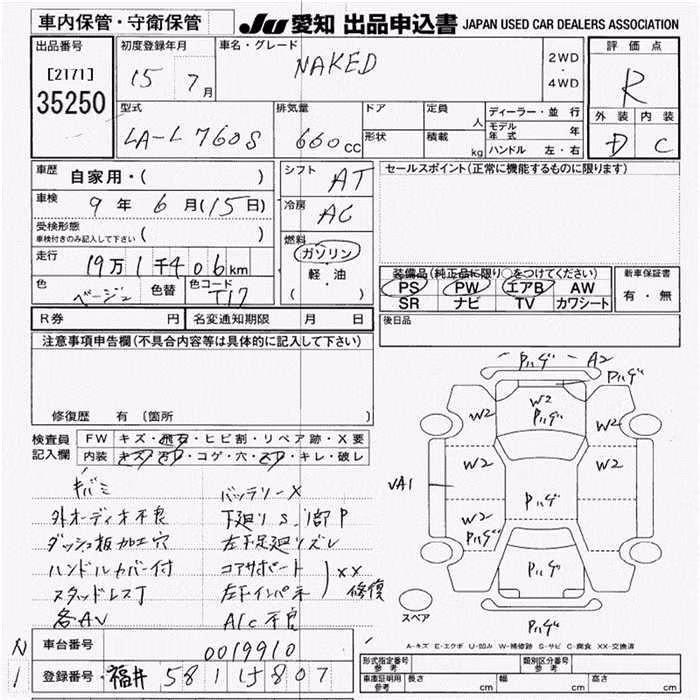 車内保管・守衛保管
JU 愛知 出品申込書 JAPAN USED CAR DEALERS ASSOCIATION
出品番号
[2171]
35250
初度登録年月
15 7月
車名・グレード
NAKED
2WD
・
4WD
評価点
R
外装 内装
D C
型式
LA-L760S
排気量
660cc
ドア
形状
定員 人
積載 kg
ディーラー・並行
モデル年式 年
ハンドル 左・右
車歴
自家用・( )
車検
9年6月(15日)
受検形態
車検付きのみ記入して下さい ( )
走行
19万1千406km
色
ベージュ
色替
色コード
T17
シフト
AT
冷房
AC
燃料
ガソリン
軽油
( )
セールスポイント(正常に機能するものに限ります)
装備品(純正品に限り○をつけてください)
PS PW エアB AW
SR ナビ TV カワシート
新車保証書
有・無
R券 円
名変通知期限 月 日
後日品
注意事項申告欄(不具合内容等は具体的に記入して下さい)
修復歴 有 (箇所
検査員
記入欄
FW キズ・飛石・ヒビ割・リペア跡・X要
内装 キズ・汚れ・コゲ・穴・スレ・キレ・破レ
キバミ
外オーディオ不良
ダッシュ板加工穴
ハンドルカバー付
スタッドレスT
各AV
バッテリーX
下廻りS.部P
左下足廻りズレ
コアサポート
左下インパネ
XX
修復
A/C不良
パハゲ A2
パハゲ
W2
W2
パハゲ
W2
W2
W2
パハゲ
W2
パハゲ
VA1
パハゲ
パハゲ
スペア
A-キズ E-エクボ U-凹み W-補修跡 S-サビ C-腐食 XX-交換済
N
1
車台番号
0019910
登録番号
福井581け807
形式指定番号
参考
類別区分番号
参考
車庫証明用
参考
長さ cm
幅 cm
高さ cm